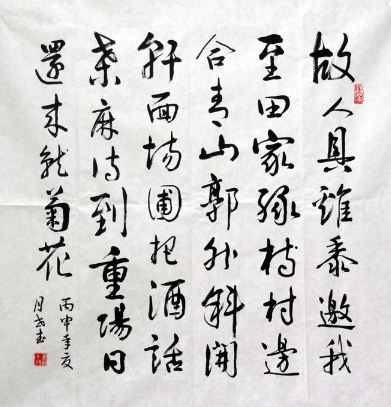 故人具雞黍邀我
至田家綠樹村邊
合青山郭外斜開
軒面場圃把酒話
桑麻待到重陽日
還來就菊花
丙申年夏
月